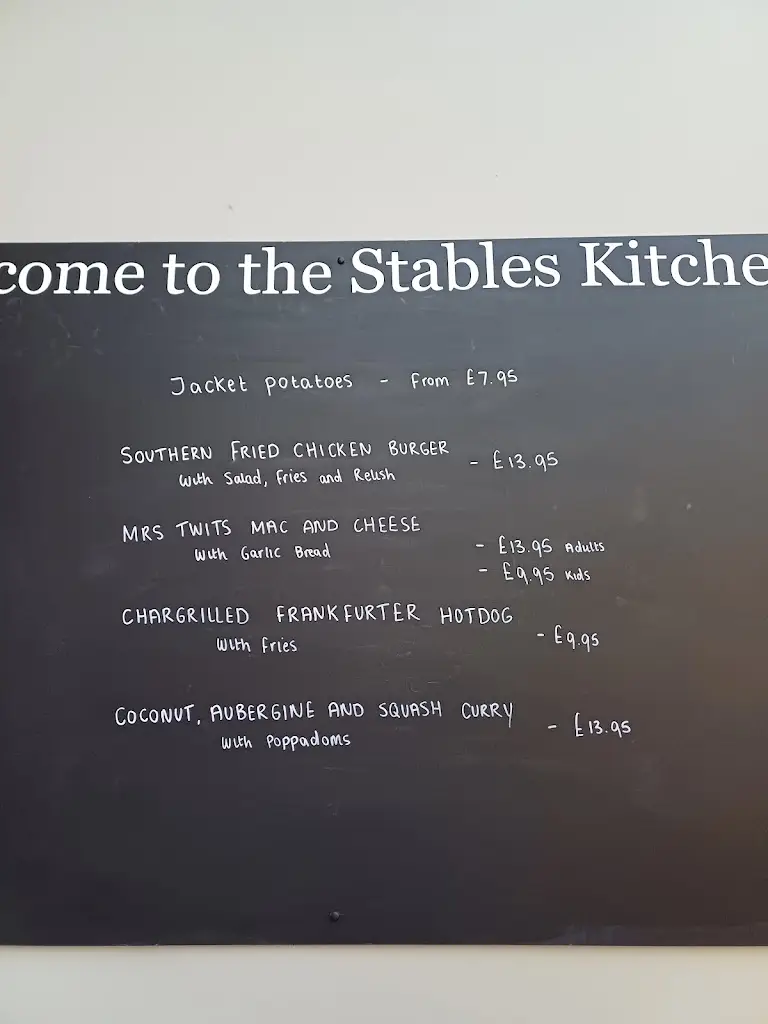 come to the Stables Kitche
Jacket potatoes - From £7.95
SOUTHERN FRIED CHICKEN BURGER - £13.95
With Salad, Fries and Relish
MRS TWITS MAC AND CHEESE
With Garlic Bread - £13.95 Adults
- £9.95 Kids
CHARGRILLED FRANKFURTER HOTDOG
With Fries - £9.95
COCONUT, AUBERGINE AND SQUASH CURRY - £13.95
With Poppadoms